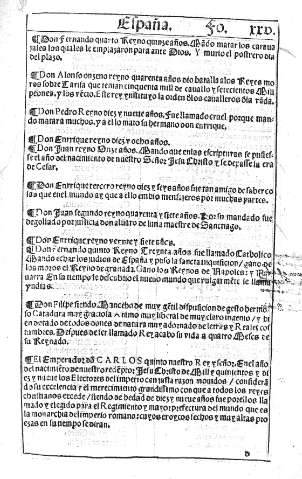 España. Fo. XXV.
¶Don Fernando quarto Reyno Quinze años. Mãdo matar los carua
jales los quales le emplazaron para ante Dios. Y murio el postrero dia
del plazo.
¶Don Alonso onzeno reyno quarenta años dio batalla a los Reyes mo
ros sobre Tarifa que tenian cinquenta mill de cauallo y setecientos Mill
peones, y los vécio. Este rey instituyo la orden dlos caualleros dla vãda.
¶Don Pedro Reyno diez y nueue años. Fue llamado cruel porque man-
do matar a muchos. y a el lo mato su hermano don enrrique.
¶Don Enrrique reyno diez y ocho años.
¶Don Juan reyno Onze años. Mando que en las escripturas se pusies-
se el año del nacimiento de nuestro Señor Jesu Christo y se dexasse la era
de Cesar.
¶Don Enrrique tercero reyno diez y seys años fue tan amigo de saber co
las que en el mundo ay que a ello embio mensajeros por muchas partes.
¶Don Juan segundo reyno quarenta y siete años. Por su mandado fue
degollado por justicia don aluaro de luna maestre de Sanctiago.
¶Don Enrrique reyno veynte y siete años.
¶Don Fernando quinto Reyno Treynta años fue llamado Catholico
Mando echar los judios de España y puso la sancta inquisicion/gano de
los moros el Reyno de granada. Gano los Reynos de Napoles: y Na-
uarra En su tiempo se descubrio el nueuo mundo que vulgarmẽte se llama
yndias.
¶Don Filipe siendo Mancebo de muy gẽtil disposicion de gesto hermo
so Catadura muy graciosa Animo muy liberal de muy claro ingenio/y bi
en dotado de todos dones de natura muy adornado de letras y Reales cos
tumbres. Despues de ser llamado Rey acabo su vida a quatro Meses de
su Reynado.
¶El Emperador dõ CARLOS quinto nuestro Rey y señor. En el año
del nacimiẽto de nuestro redẽptor Jesu Christo de Mill y quinientos y di
ez y nueue los Electores del imperio con justa razon mouidos / considerã
do su excelencia y el merecimiento grandissimo con que a todos los reyes
christianos excede / siendo de hedad de diez y nueue años fue por ellos lla
mado y elegido para el Regimiento y mayor prefectura del mundo que es
la monarchia del imperio romano: cuyos eroycos hechos y muy altas pro
ezas en su tiempo se diran.
D